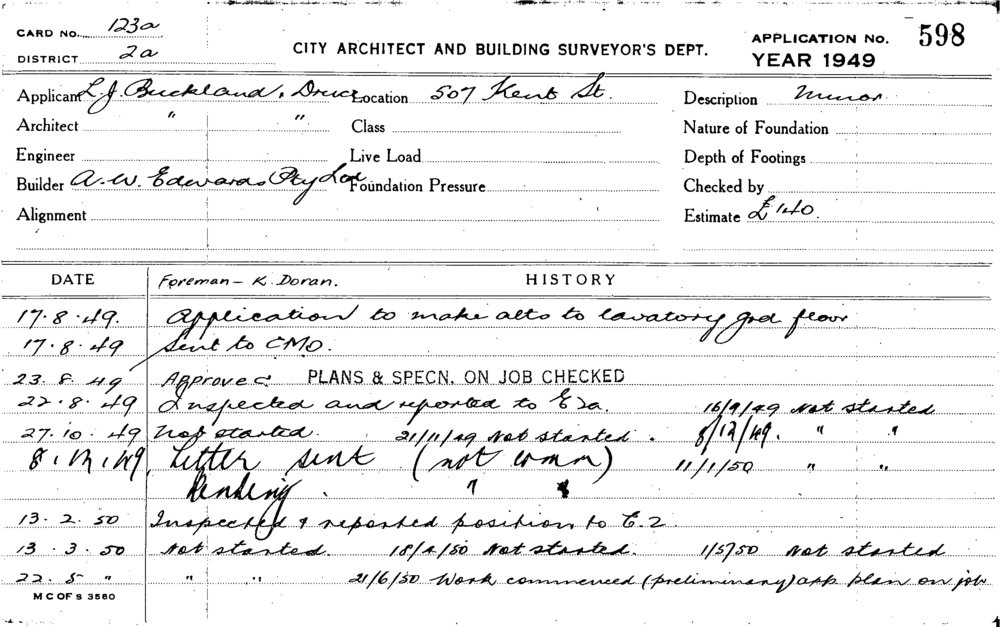 CARD NO. 123a
DISTRICT 2a
CITY ARCHITECT AND BUILDING SURVEYOR'S DEPT.
APPLICATION NO. 598
YEAR 1949
Applicant L.J. Buckland, Druce Location 507 Kent St. Description Minor
Architect " " Class Nature of Foundation
Engineer Live Load Depth of Footings
Builder A.W. Edwards Pty Ltd Foundation Pressure Checked by
Alignment Estimate £140.
DATE Foreman - K. Doran. HISTORY
17.8.49. Application to make alts to lavatory grd floor
17.8.49 Sent to CMO.
23.8.49 Approved PLANS & SPECN. ON JOB CHECKED
22.8.49 Inspected and reported to E2a. 16/9/49 Not started
27.10.49 Not started. 21/11/49 Not started. 8/12/49. " "
8.12.49 Letter sent (not comm) 11/1/50 " "
Pending. " "
13.2.50 Inspected & reported position to E.2
13.3.50 Not started. 18/4/50 Not started. 1/5/50 Not started
22.5 " " " 21/6/50 Work commenced (preliminary) app plan on job
M C OF S 3560